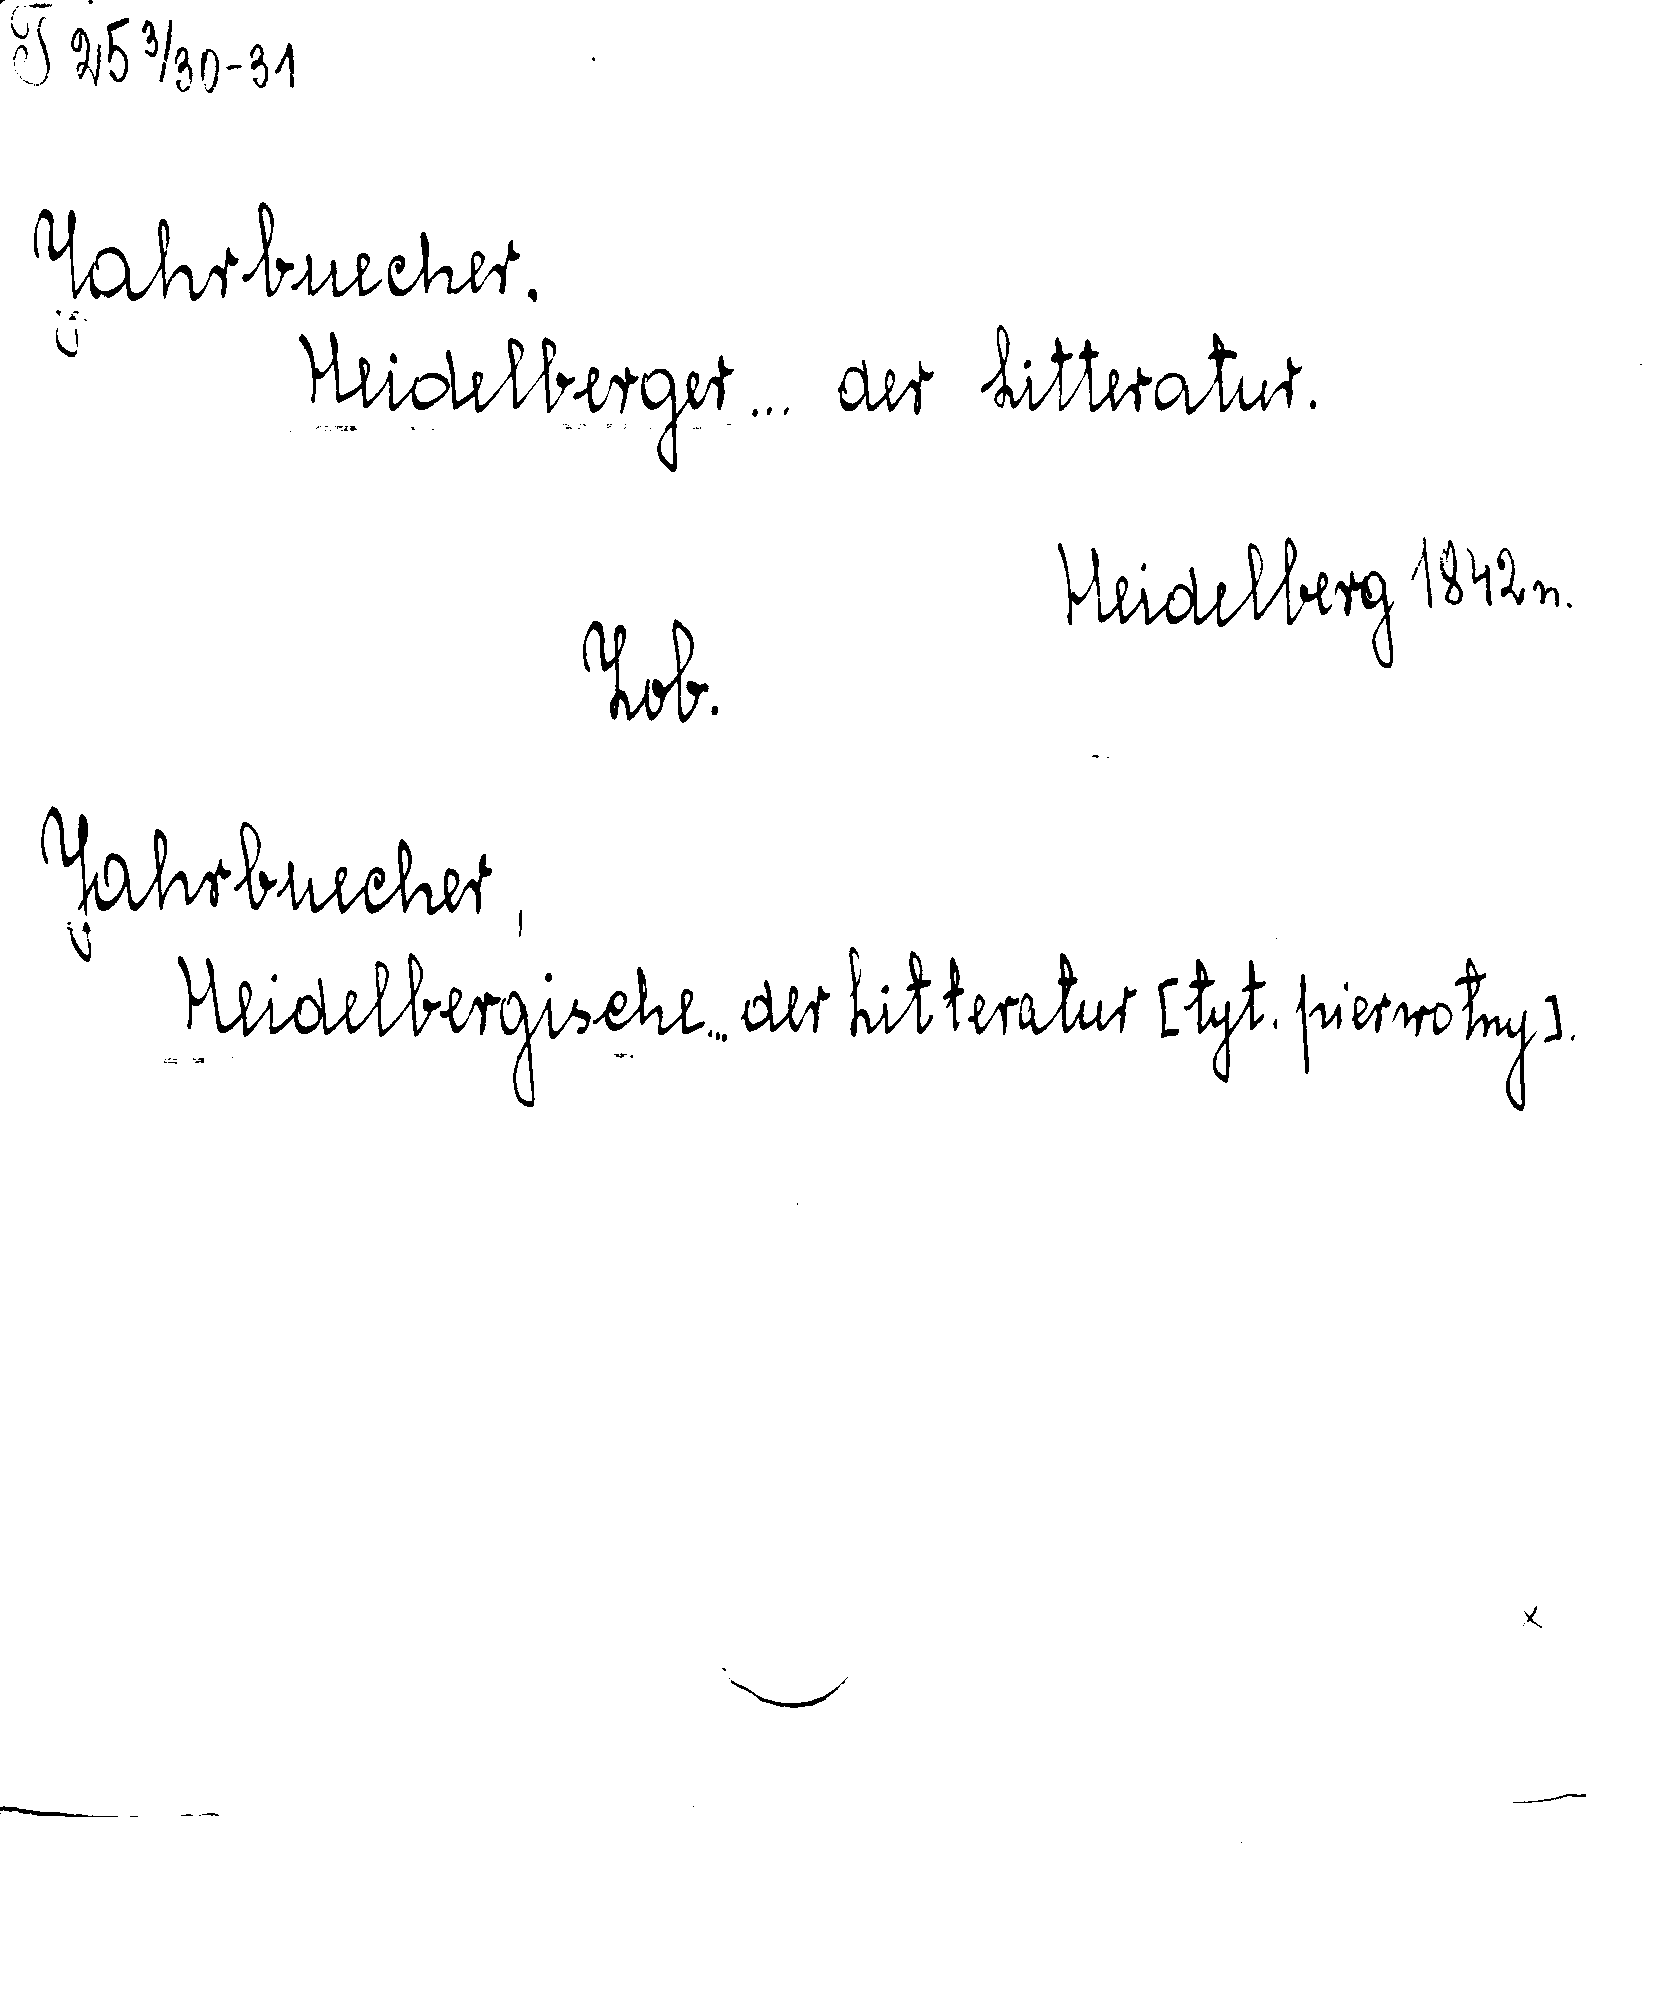 T 25 3/30-31
Jahrbuecher.
Heidelberger... der Litteratur.
Heidelberg 1842 n.
Zob.
Jahrbuecher,
Heidelbergische... der Litteratur [tyt. pierwotny].
x